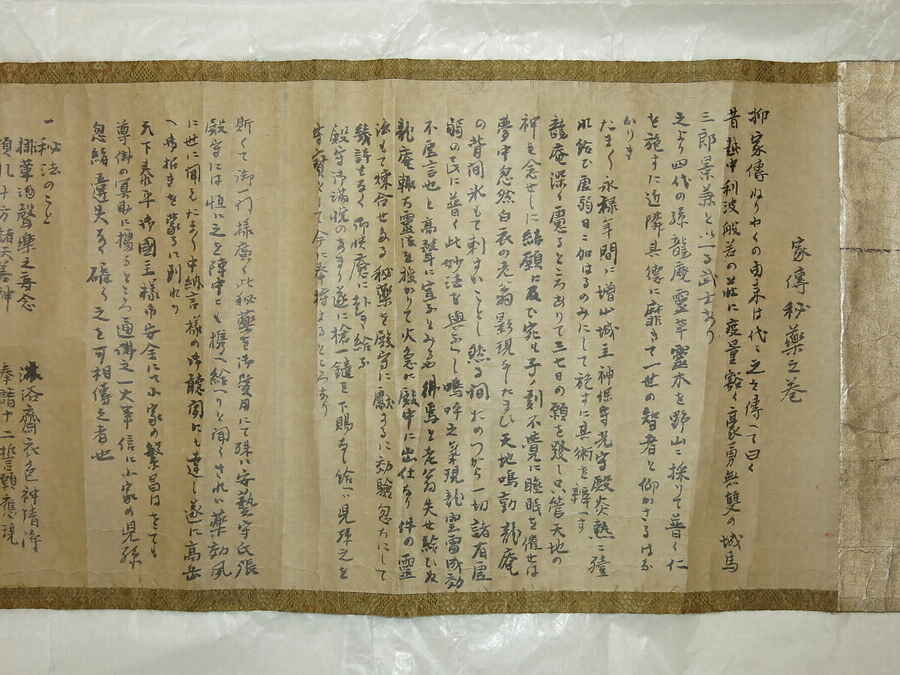 家傳秘藥之巻
抑家傳ねりやくの由来は代々之を傳へて曰く
昔越中利波般若の荘に度量豁く豪勇無雙の城馬
三郎景兼といへる武士あり
之より四代の孫龍庵靈草靈木を野山に採りて普く仁
を施すに近隣其傳に靡きて一世の智者と仰かさるはな
かりき
たまく永禄年間に増山城主神保安芸守殿炎熱に
れ給ひ羸弱日に加はるのみにして施すに其術を辨す
龍庵深く慮るところありて三七日の願を發し只管天地の
神を念せしに結願に及ひ宛も子ノ刻不覺に睡眠を催せは
夢中忽然白衣の老翁影現ましたまひ天地鳴動龍庵
の背洞氷もて刺すかことし然る詞おのつから一切諸有羸
弱の民に普く此妙法を與ふへし嗚呼之氣現龍雲雷成効
不虚言也と高聲に宣ふとみるや彿焉と老翁失せ給ひぬ
龍庵輙ち靈法を披りて火急に殿中に出仕なり件の靈
法もて煉合せたる秘藥を殿守に獻するに効驗忽ちにして
幾許もなく御快癒に赴き給ふ
殿守御満悦のあまり遂に槍一鑓を下賜なし給ひ兒孫之を
家寳として今に奉持するところなり
斯くて御一門様廣く此秘藥を御賞用にて殊に安藝守氏張
殿守には恒に之を陣中にも携へ給へりと聞くされは藥効風
に世に聞えたまく中納言様の御聽聞にも達し遂に高岳
へ御招きを蒙るに到れり
天下泰平御國主様御安全にて小家の繁昌はとても
尊掛の冥助に擂るところ適御之一大事信に小家の兒孫
忽緒違失なく碌々之を可相傳之者也
一秘法のこと
排葷酒聲樂之妄念　沐浴齋衣色神清淨
頂礼十方諸天善神　奉誦十二誓願應現